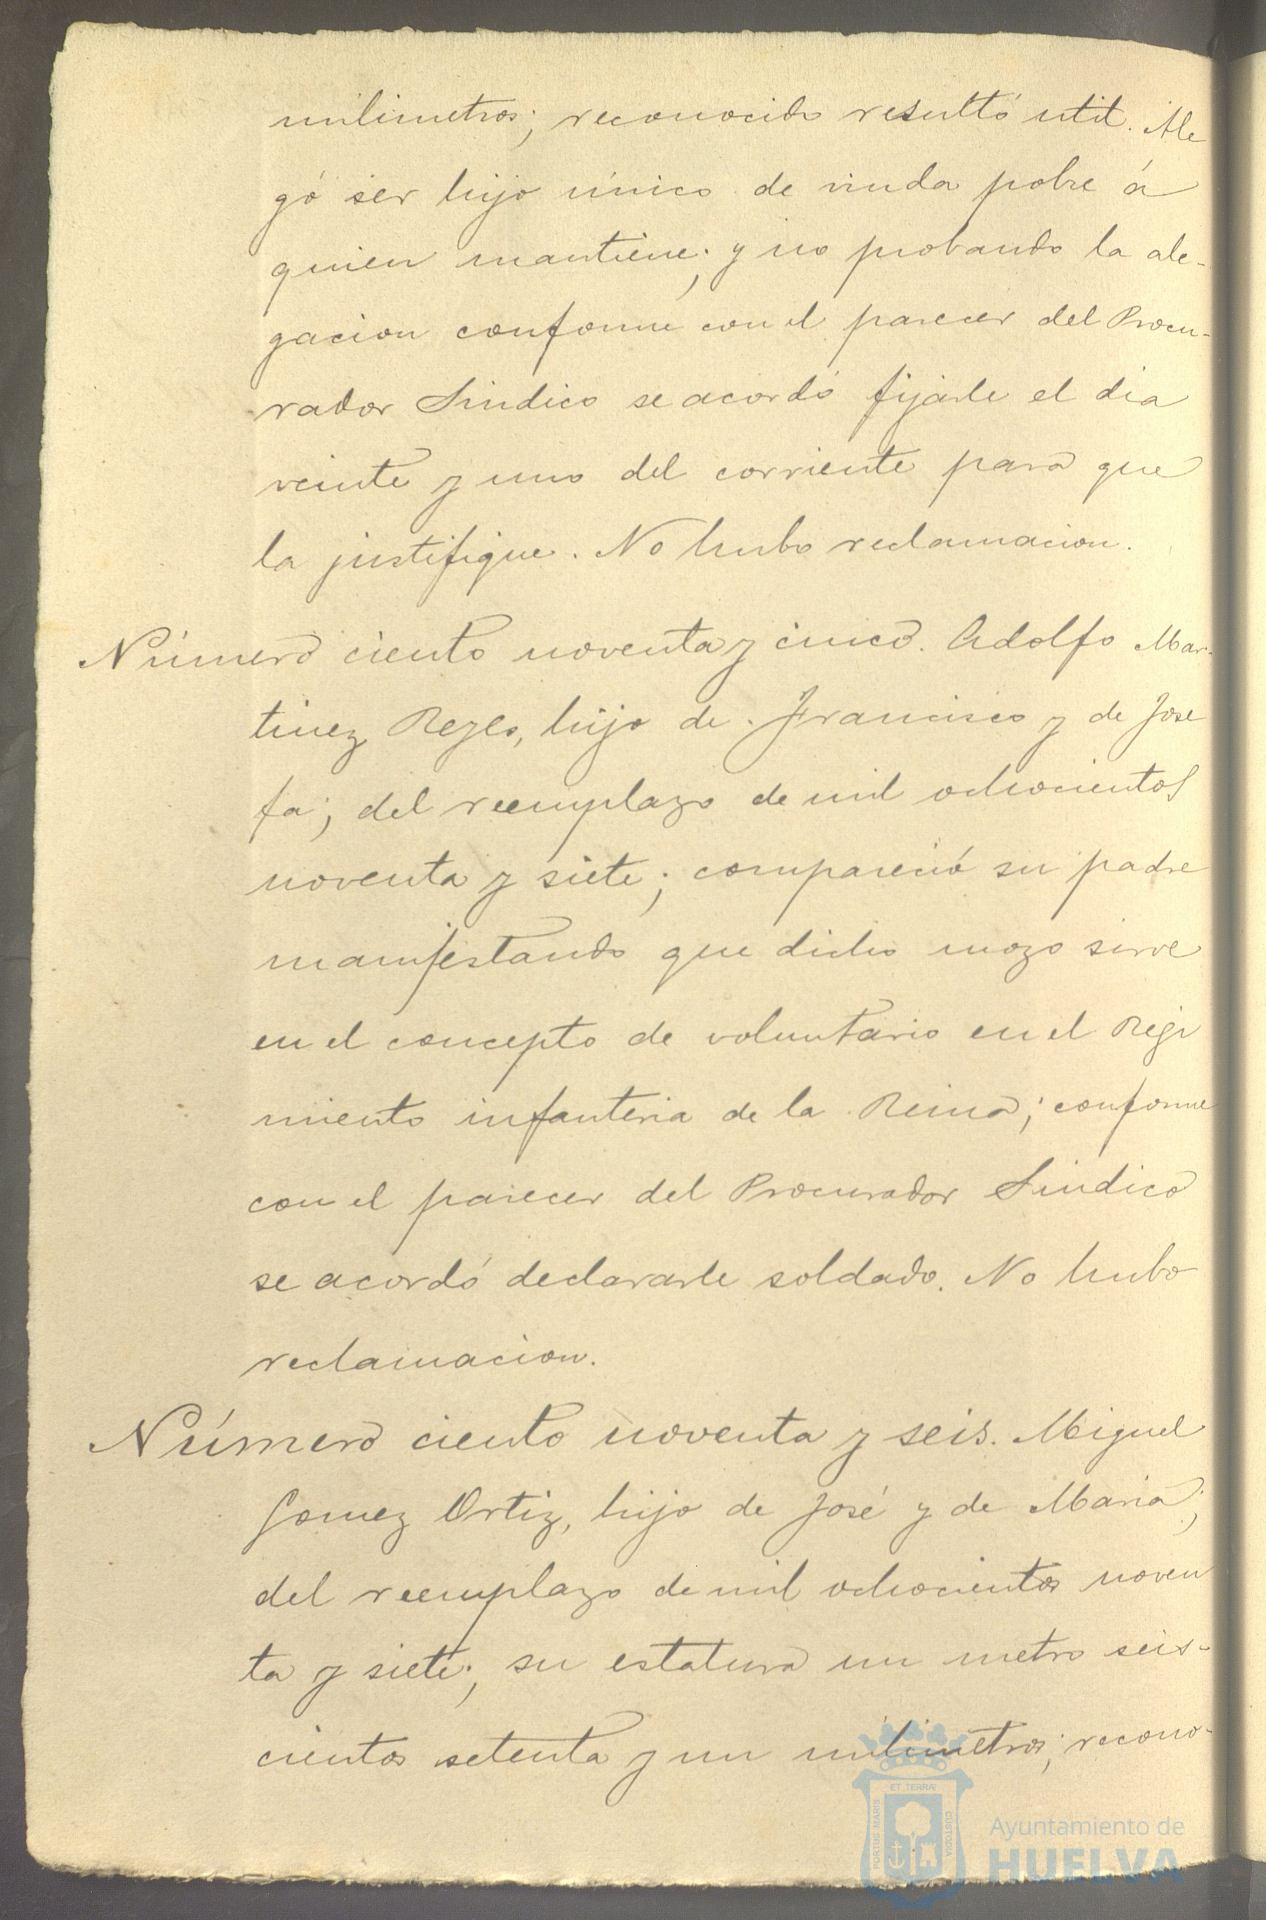 milimetros; reconocido resultó util. Ale
gó ser hijo único de viuda pobre á
quien mantiene; y no probando la ale-
gacion conforme con el parecer del Procu-
rador Sindico se acordó fijarle el dia
veinte y uno del corriente para que
la justifique. No hubo reclamacion.
Número ciento noventa y cinco. Adolfo Mar-
tinez Reyes, hijo de Francisco y de Jose
fa; del reemplazo de mil ochocientos
noventa y siete; compareció su padre
manifestando que dicho mozo sirve
en el concepto de voluntario en el Regi
miento infanteria de la Reina; conforme
con el parecer del Procurador Sindico
se acordó declararle soldado. No hubo
reclamacion.
Número ciento noventa y seis. Miguel
Gomez Ortiz, hijo de José y de Maria;
del reemplazo de mil ochocientos noven
ta y siete; su estatura un metro seis-
cientos setenta y un milimetros; recono-
ET TERRÆ
PORTUS MARIS
CUSTODIA
Ayuntamiento de
HUELVA